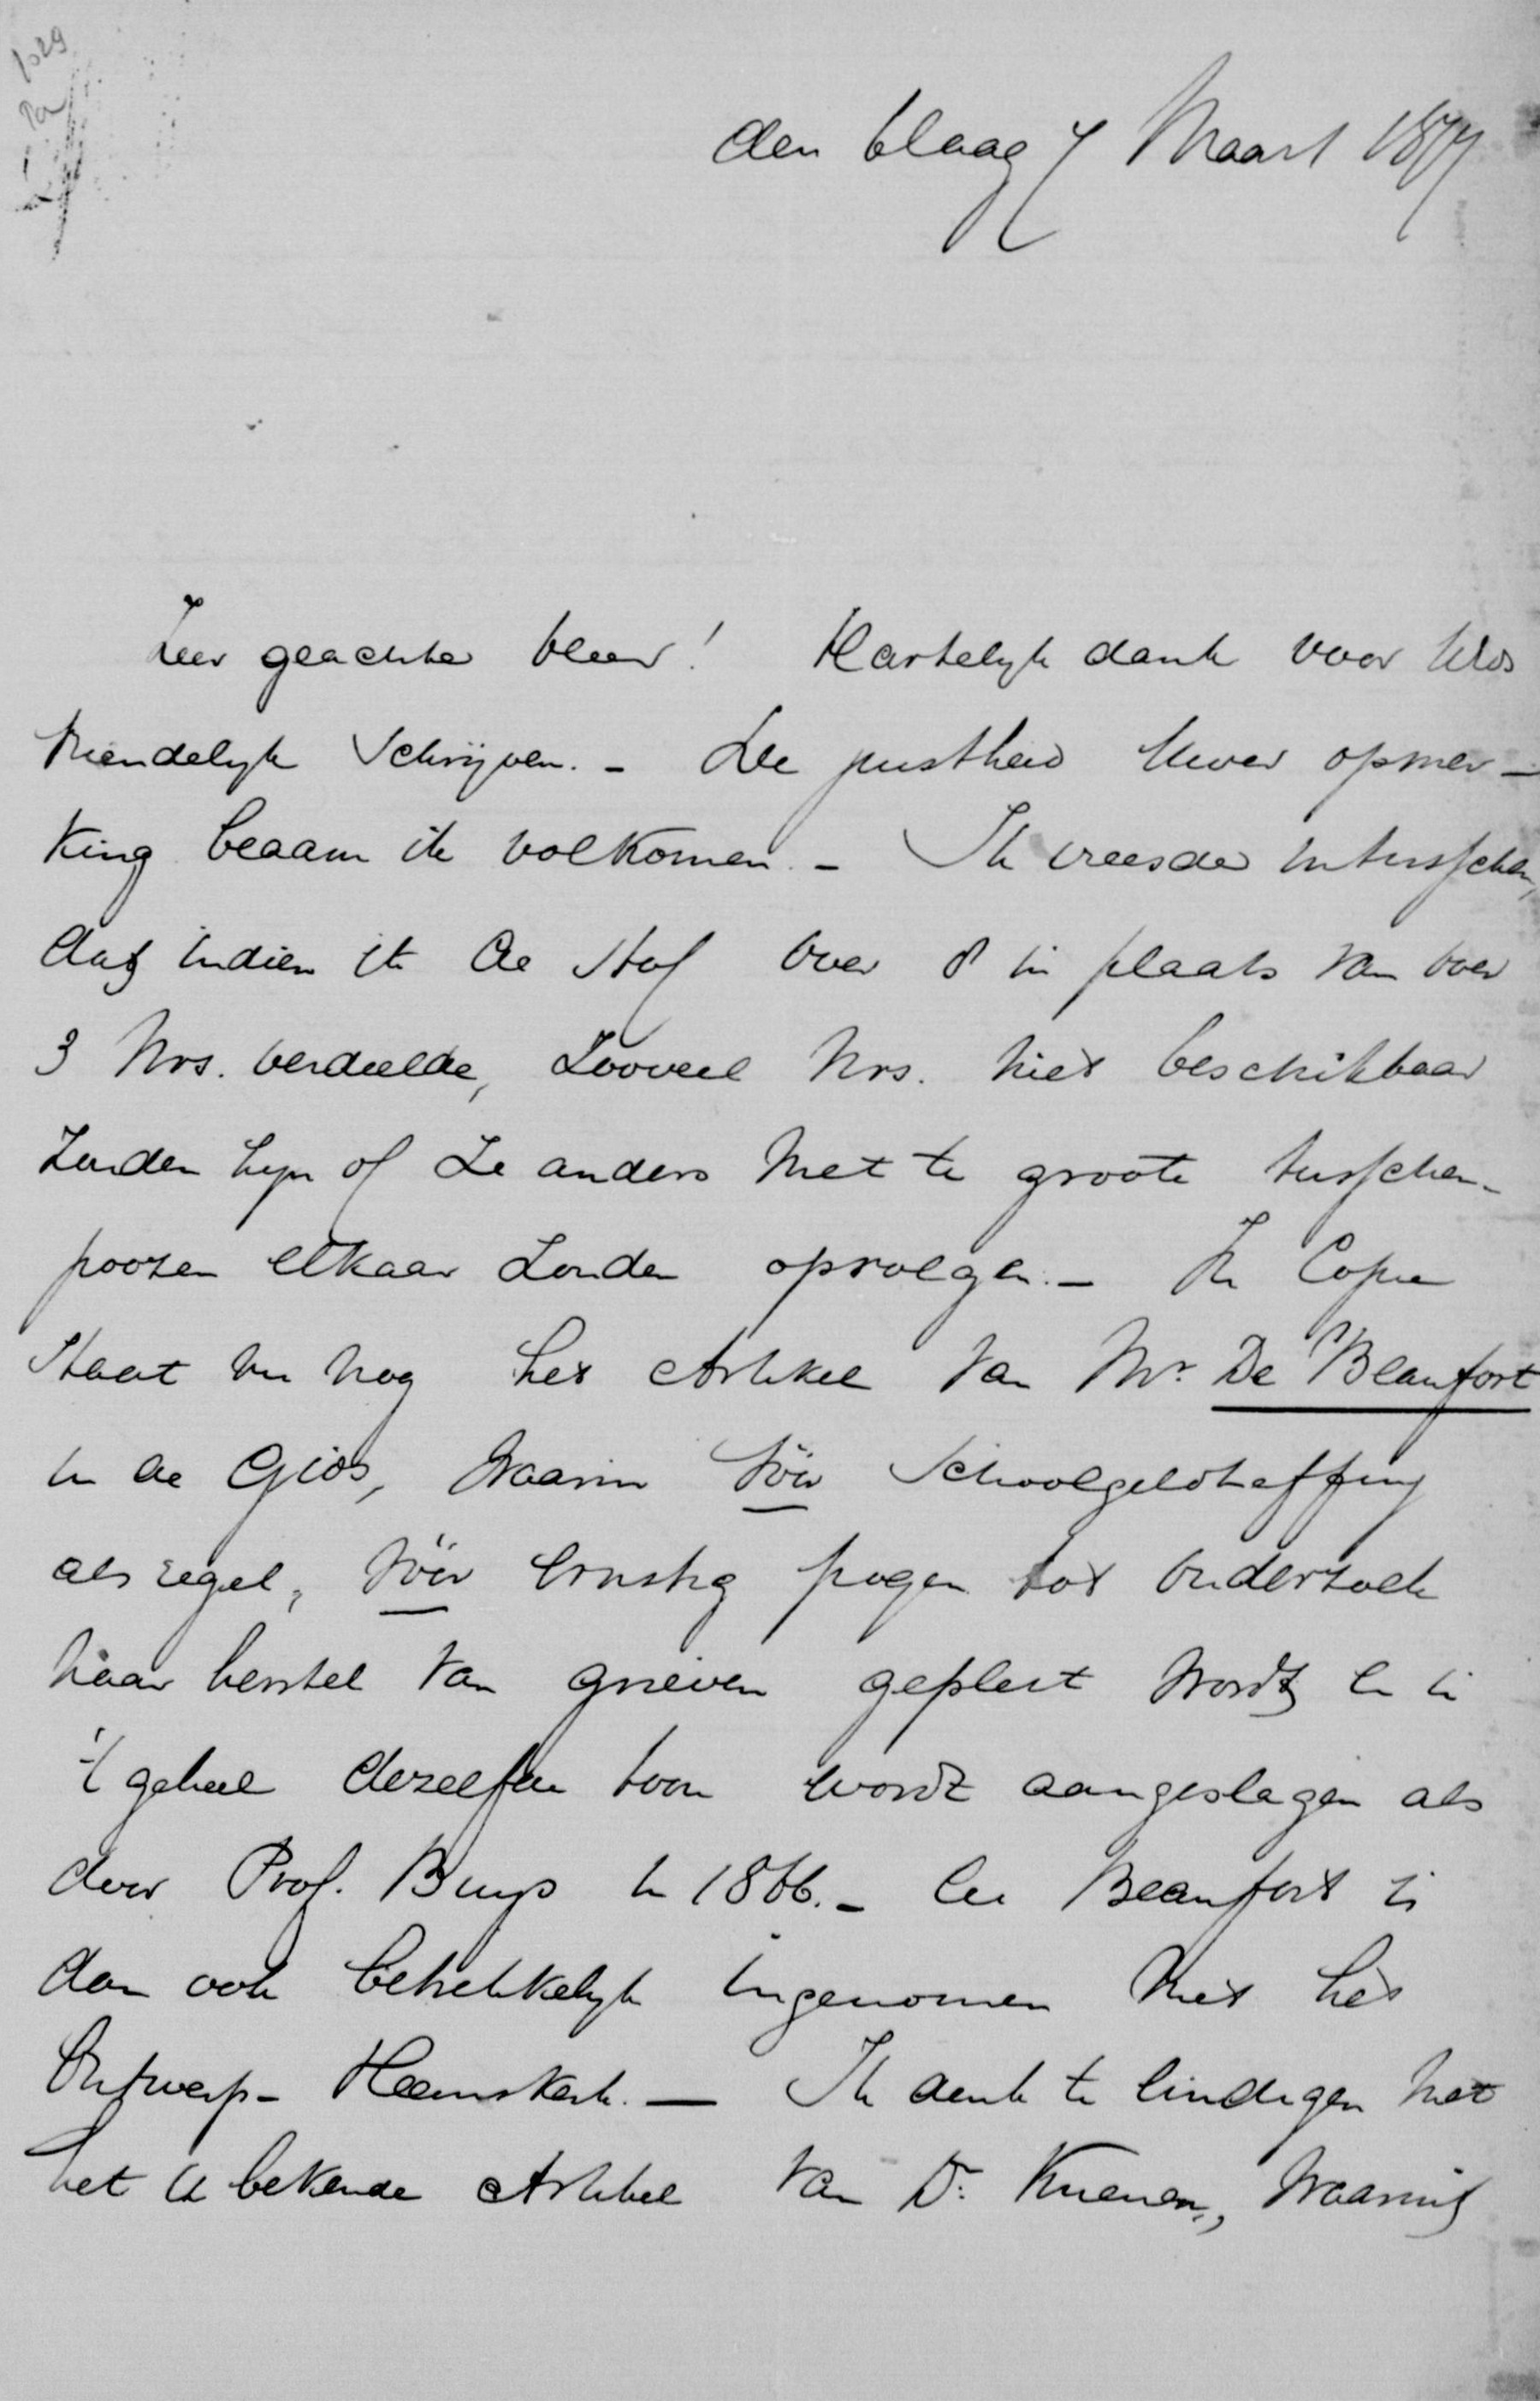 1029
den Haag 7 Maart 1877
Zeer geachte Heer! Hartelijk dank voor Uw
vriendelijk schrijven. - De juistheid Uwer opmer-
king beaam ik volkomen. - Ik vreesde intusschen,
dat indien ik de stof over 8 in plaats van over
3 Nrs. verdeelde, zooveel Nrs. niet beschikbaar
zouden zijn of ze anders met te groote tusschen-
poozen elkaar zouden opvolgen. - In Copie
staat nu nog het Artikel van Mr. De Beaufort
in de Gids, waarin vóór Schoolgeldheffing
als regel, vóór ernstig pogen tot onderzoek
naar herstel van grieven gepleit wordt en in
't geheel dezelfde toon wordt aangeslagen als
door Prof. Buys in 1866. - De Beaufort is
dan ook betrekkelijk ingenomen met het
Ontwerp-Heemskerk. — Ik denk te eindigen met
het U bekende Artikel van Dr. Kuenen, waaruit